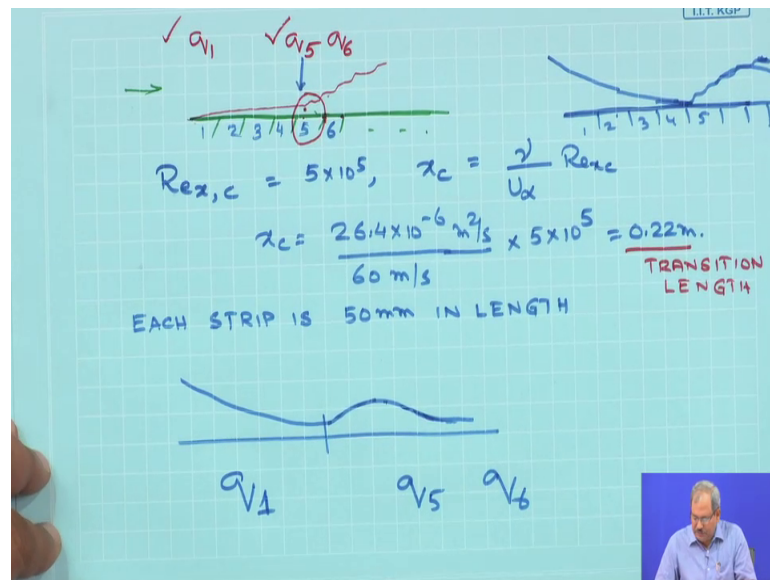 I.I.T. KGP
✓ q1 ✓ q5 q6
1 2 3 4 5 6 - - .
1 2 3 4 5
Rex,c = 5×10⁵, xc = ν/U∝ Rexc
xc = 26.4×10⁻⁶ m²/s / 60 m/s × 5×10⁵ = 0.22m.
TRANSITION
LENGTH
EACH STRIP IS 50mm IN LENGTH
q1 q5 q6